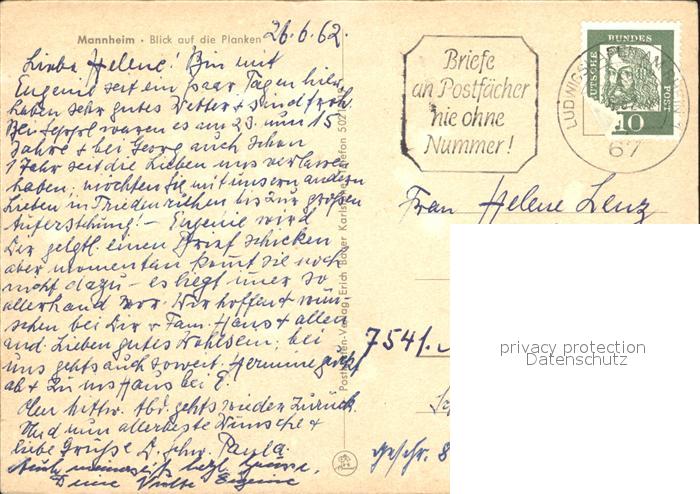 Mannheim · Blick auf die Planken
26.6.62.
Liebe Helene! Bin mit
Eugenie seit ein paar Tagen hier,
haben sehr gutes Wetter & sind froh.
Bei waren es am 23. nun 15
Jahre & bei Georg auch schon
1 Jahr seit die Lieben uns verlassen
haben, möchten Sie mit unsern andern
Lieben in Frieden ruhen bis zur großen
Auferstehung! – Eugenie wird
Dir gelgtl. einen Brief schicken
aber momentan kommt sie noch
nicht dazu – es liegt imer so
allerhand vor. Wir hoffen & wün
schen bei Dir & Fam. Hans & allen
and. Lieben gutes Wohlsein; bei
uns gehts auch soweit. Hermine guckt
ab & zu ins Haus bei E.
Mittw. Abd. gehts wieder zurück
Und nun allerbeste Wünsche &
liebe Grüße D. Schw. Paula.
Auch meinerseits herzl. Grüsse,
Deine Eugenie
Postkarten-Verlag Erich Bauer Karlsruhe Telefon
Briefe
an Postfächer
nie ohne
Nummer!
DEUTSCHE BUNDES POST
10
LUDWIGSHAFEN AM RHEIN 1
67
Frau Helene Lenz
754
privacy protection
Datenschutz
geschr. 8